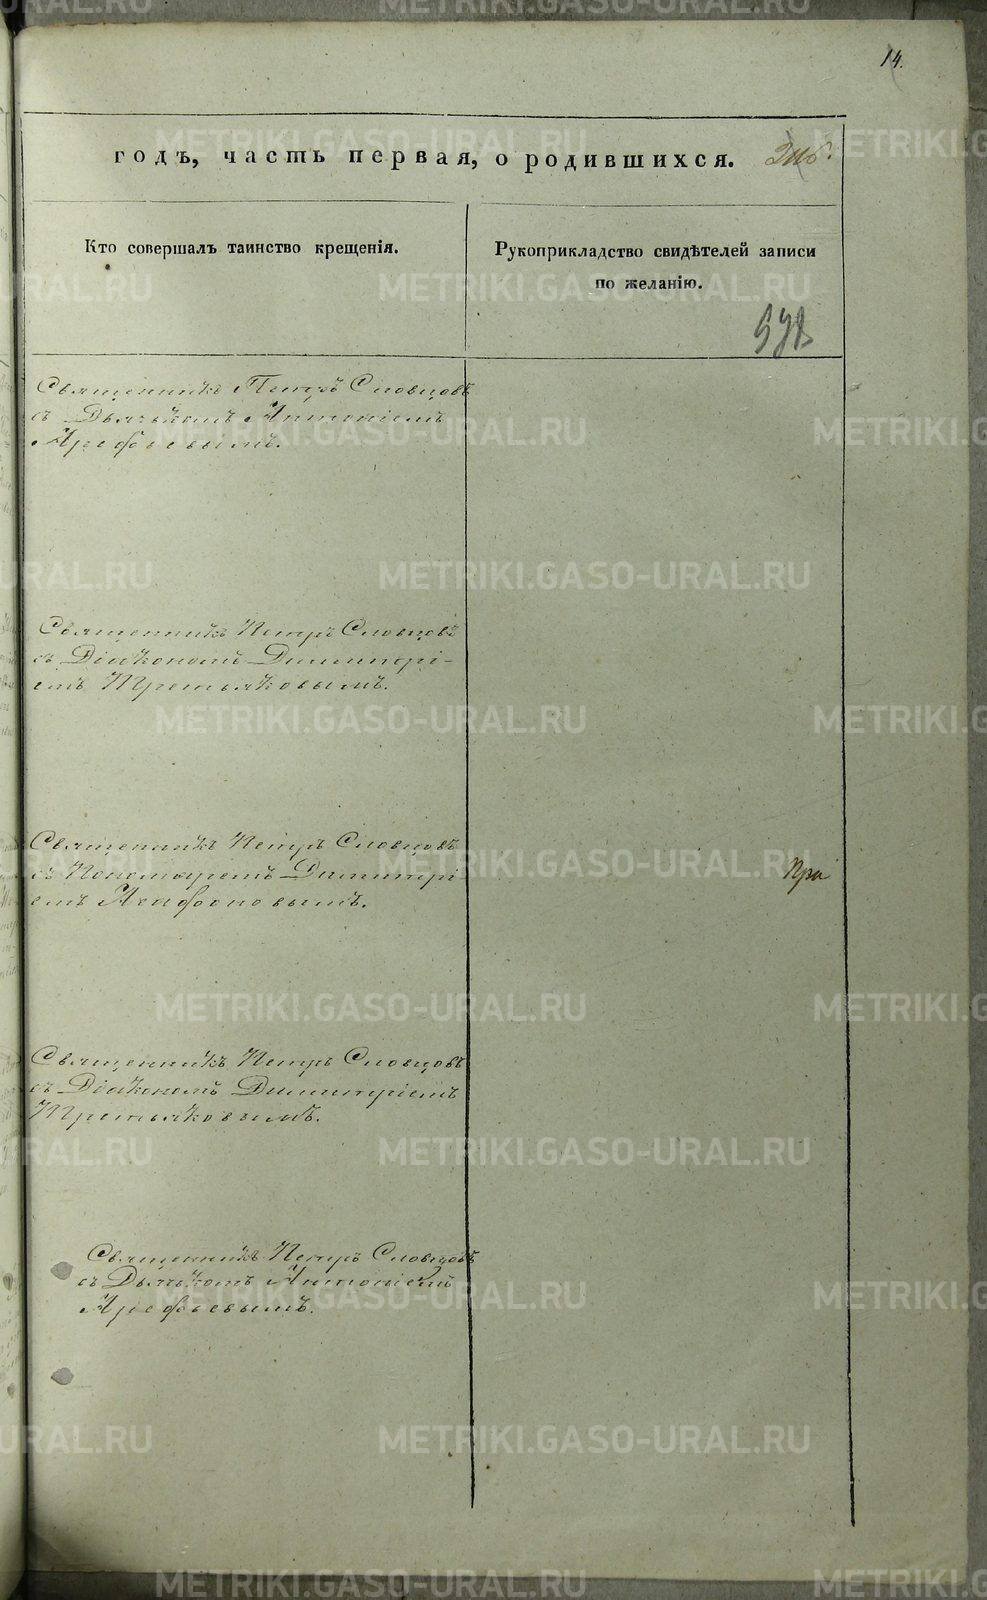 14.
годъ, часть первая, о родившихся.
Кто совершалъ таинство крещенія.
Рукоприкладство свидѣтелей записи
по желанію.
Священникъ Петръ Словцовъ
съ Дьячькомъ Антоніемъ
Арефьевымъ.
Священникъ Петръ Словцовъ
съ Діакономъ Димитрі-
емъ Третьяковымъ.
Священникъ Петръ Словцовъ
съ Пономаремъ Димитрі
емъ Агафоновымъ.
При
Священникъ Петръ Словцовъ
съ Діакономъ Димитріемъ
Третьяковымъ.
Священникъ Петръ Словцовъ
съ Дьячькомъ Антоніемъ
Арефьевымъ.
METRIKI.GASO-URAL.RU